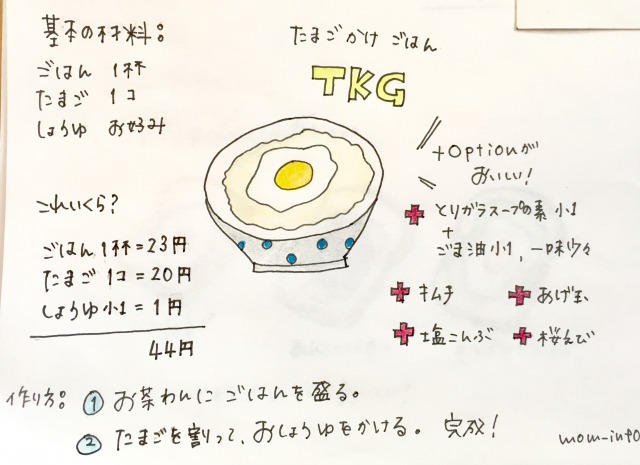 基本の材料:
ごはん 1杯
たまご 1コ
しょうゆ お好み
たまごかけ ごはん
TKG
これいくら?
ごはん1杯=23円
たまご 1コ=20円
しょうゆ小1=1円
44円
+Optionが
おいしい!
+ とりガラスープの素 小1
+
ごま油小1, 一味少々
+ キムチ
+ あげ玉
+ 塩こんぶ
+ 桜えび
作り方: ① お茶わんに ごはんを盛る。
② たまごを割って、おしょうゆをかける。 完成!
mom-info